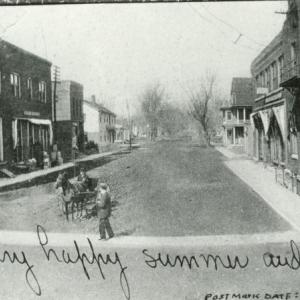 ry happy summer and
POSTMARK DATE: